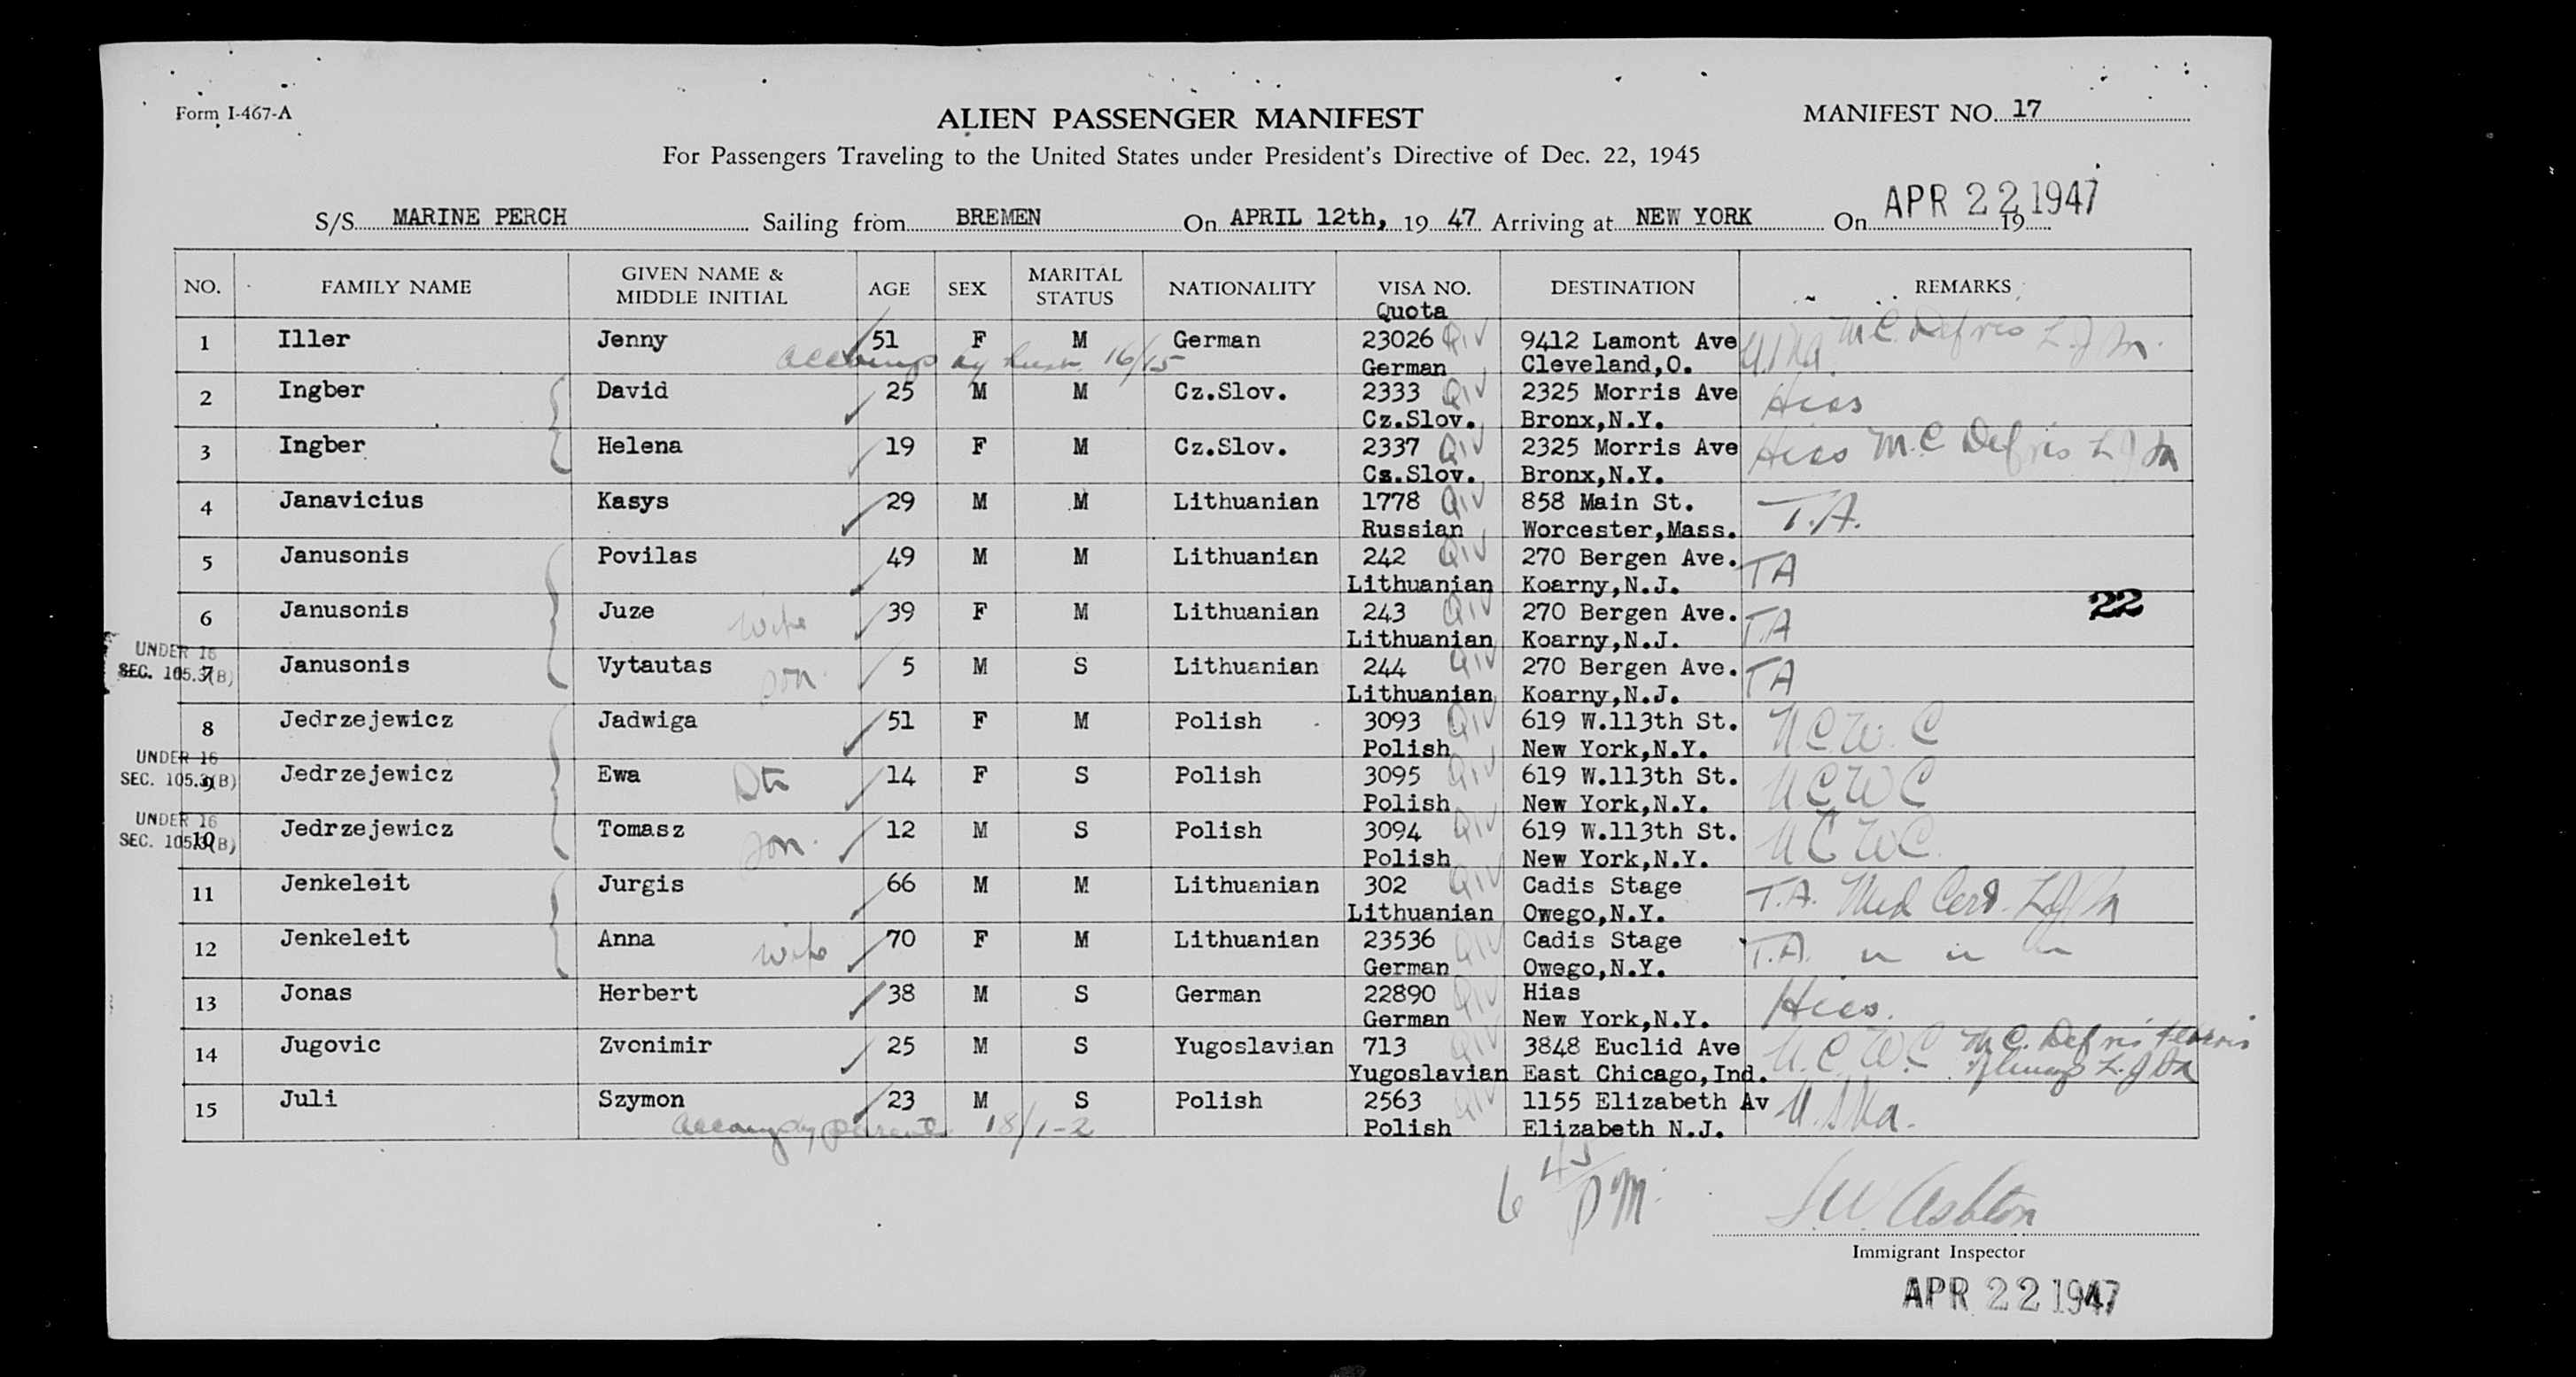 Form I-467-A
ALIEN PASSENGER MANIFEST
MANIFEST NO. 17
For Passengers Traveling to the United States under President's Directive of Dec. 22, 1945
S/S MARINE PERCH Sailing from BREMEN On APRIL 12th, 19 47 Arriving at NEW YORK On APR 22 1947 19
NO. FAMILY NAME GIVEN NAME & MIDDLE INITIAL AGE SEX MARITAL STATUS NATIONALITY VISA NO. Quota DESTINATION REMARKS
1 Iller Jenny 51 F M German 23026 QIV 9412 Lamont Ave M.C. Def vis L.J.M.
accomp by husb. 16/15 German Cleveland,O. USNA
2 Ingber David 25 M M Cz.Slov. 2333 QIV 2325 Morris Ave Hias
Cz.Slov. Bronx,N.Y.
3 Ingber Helena 19 F M Cz.Slov. 2337 QIV 2325 Morris Ave Hias M.C Def vis
Cs.Slov. Bronx,N.Y.
4 Janavicius Kasys 29 M M Lithuanian 1778 QIV 858 Main St. T.A.
Russian Worcester,Mass.
5 Janusonis Povilas 49 M M Lithuanian 242 QIV 270 Bergen Ave. TA
Lithuanian Koarny,N.J.
22
6 Janusonis Juze wife 39 F M Lithuanian 243 QIV 270 Bergen Ave. TA
Lithuanian Koarny,N.J.
UNDER 16
SEC. 105.3(B)
7 Janusonis Vytautas son 5 M S Lithuanian 244 QIV 270 Bergen Ave. TA
Lithuanian Koarny,N.J.
8 Jedrzejewicz Jadwiga 51 F M Polish 3093 QIV 619 W.113th St. N C W. C
Polish New York,N.Y.
UNDER 16
SEC. 105.3(B)
9 Jedrzejewicz Ewa Dtr 14 F S Polish 3095 QIV 619 W.113th St. N C W C
Polish New York,N.Y.
UNDER 16
SEC. 105.3(B)
10 Jedrzejewicz Tomasz son. 12 M S Polish 3094 QIV 619 W.113th St. N C W C.
Polish New York,N.Y.
11 Jenkeleit Jurgis 66 M M Lithuanian 302 QIV Cadis Stage T.A. Med Cert.
Lithuanian Owego,N.Y.
12 Jenkeleit Anna wife 70 F M Lithuanian 23536 QIV Cadis Stage T.A. " " "
German Owego,N.Y.
13 Jonas Herbert 38 M S German 22890 QIV Hias Hias.
German New York,N.Y.
14 Jugovic Zvonimir 25 M S Yugoslavian 713 QIV 3848 Euclid Ave N.C.W.C M.C. Def vis
Yugoslavian East Chicago,Ind.
15 Juli Szymon 23 M S Polish 2563 QIV 1155 Elizabeth Av USNA.
accomp by parents 18/1-2 Polish Elizabeth N.J.
6 45 PM.
Ashton
Immigrant Inspector
APR 22 1947